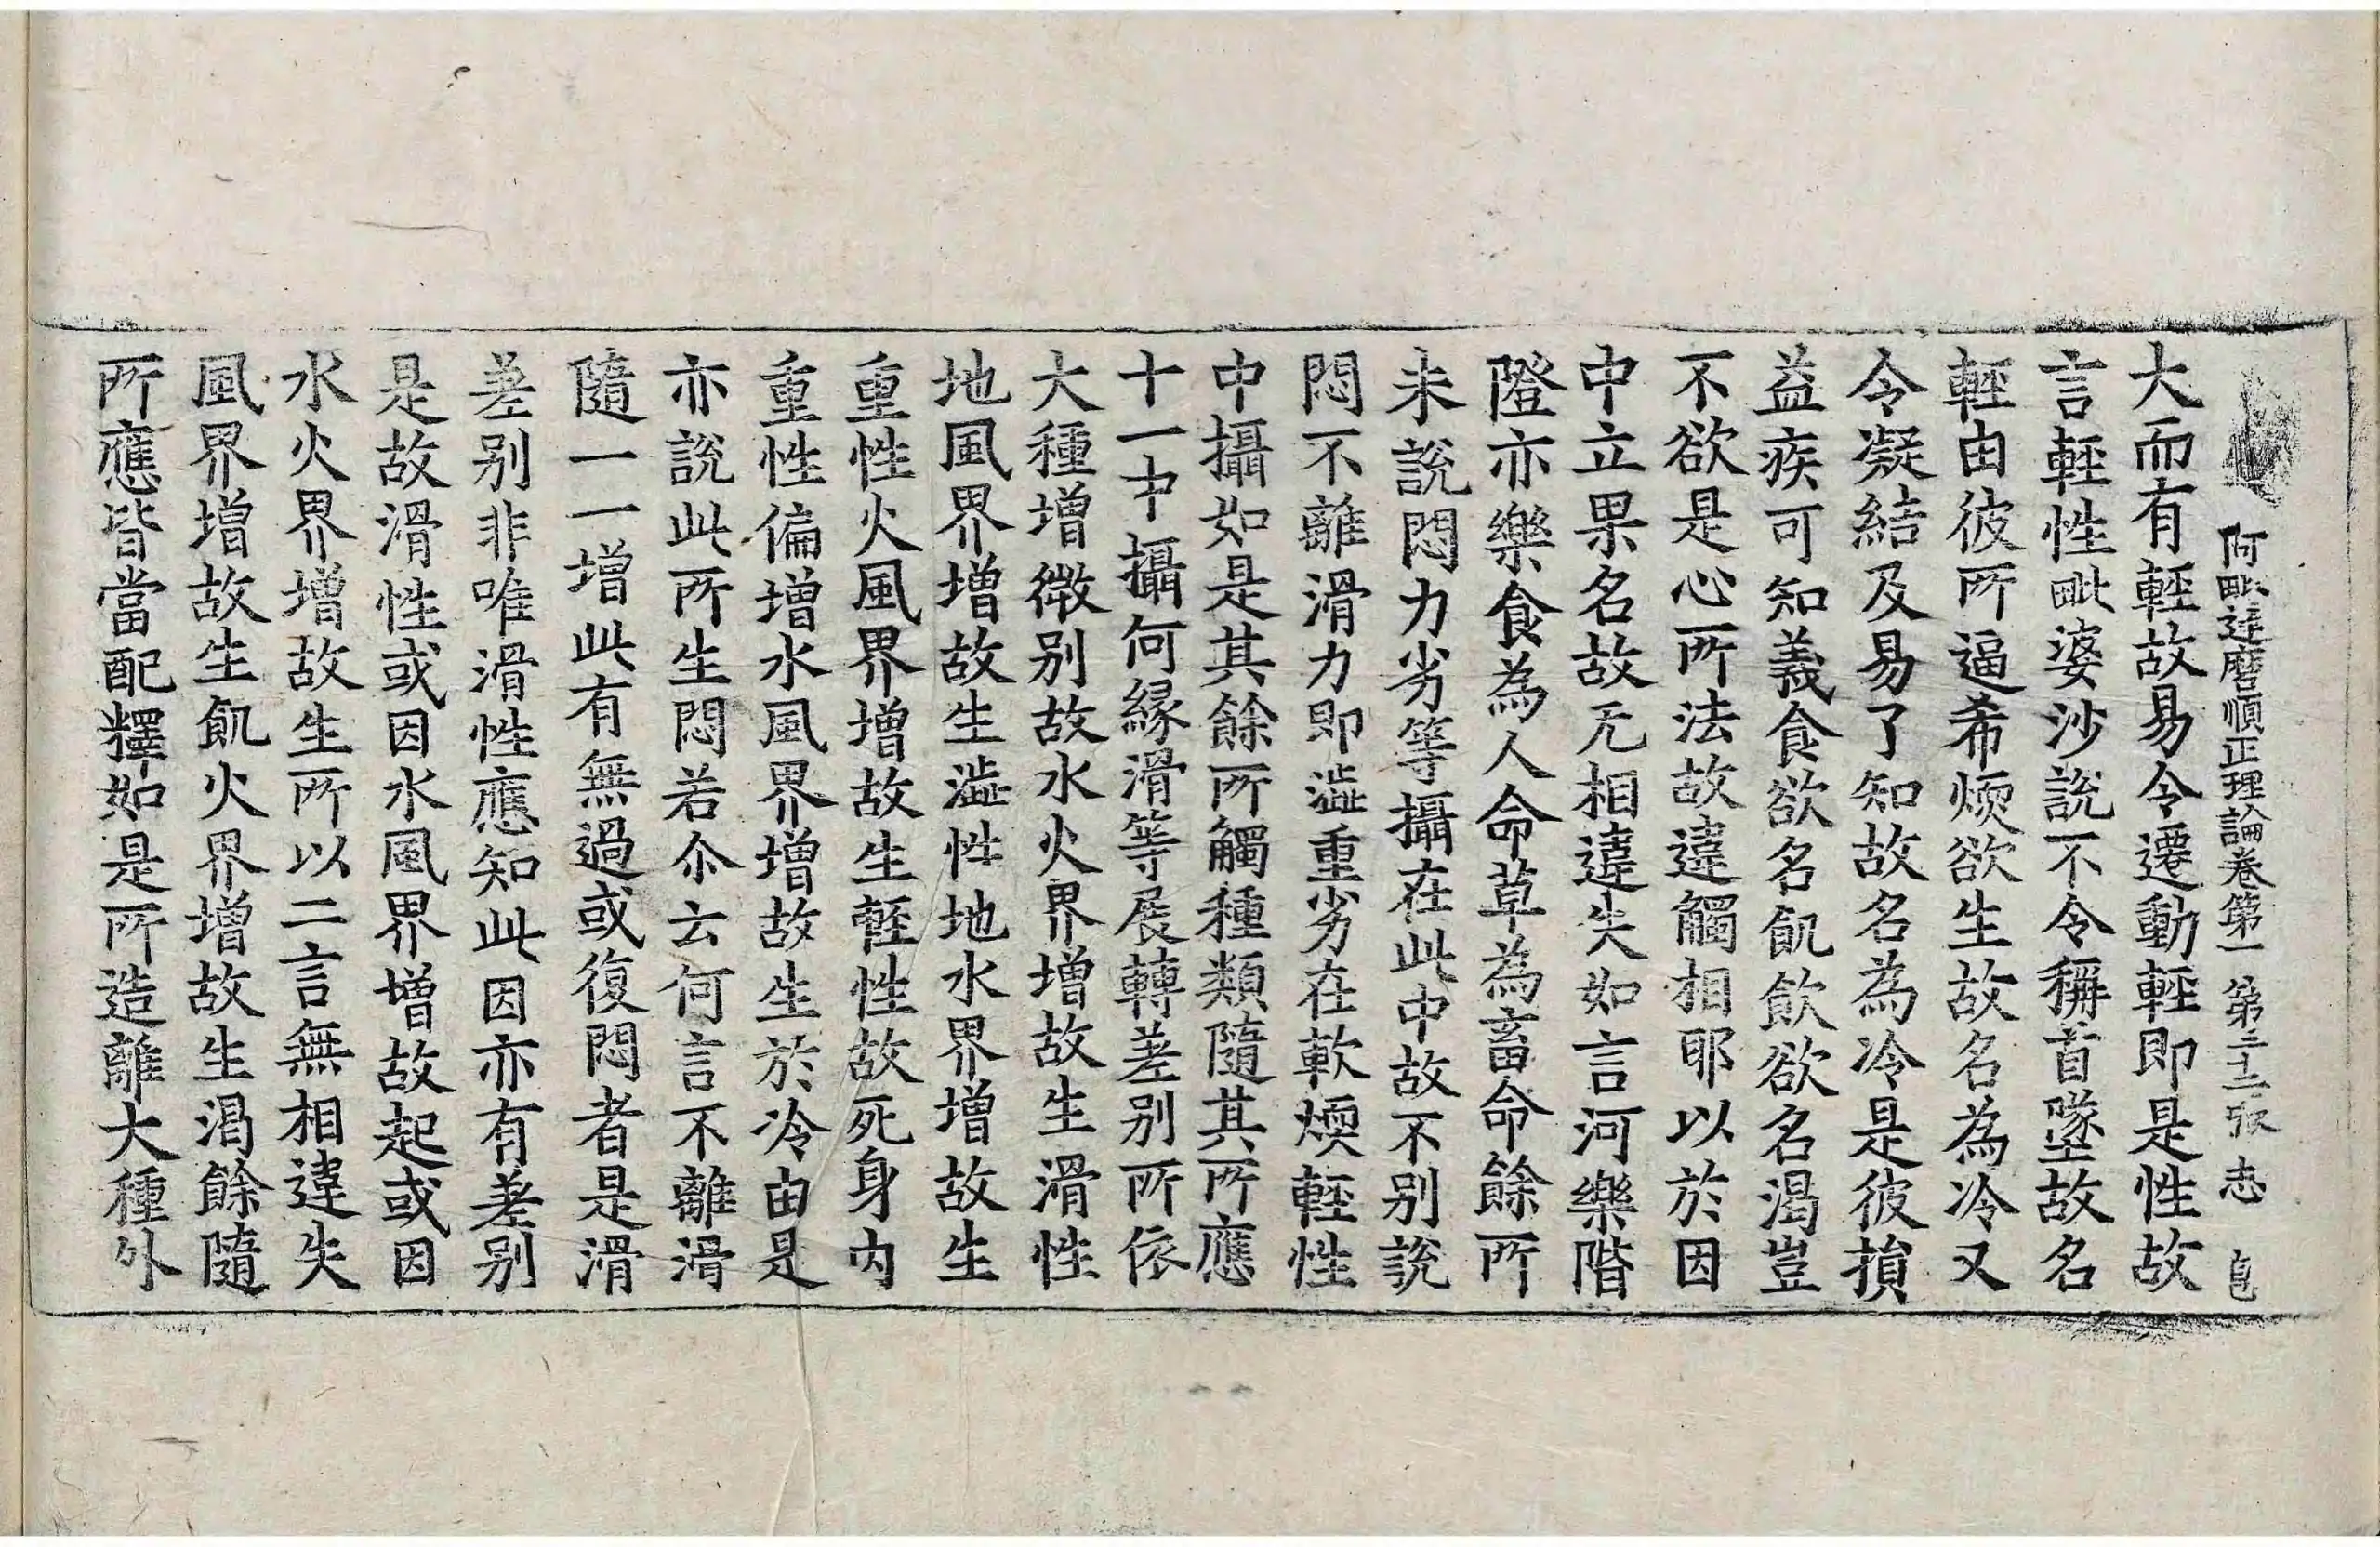 阿毗達磨順正理論卷第一 第二十二張 志 自
大而有輕故易令遷動輕即是性故
言輕性毗婆沙說不令稱首墜故名
輕由彼所逼希煗欲生故名為冷又
令凝結及易了知故名為冷是彼損
益疾可知義食欲名飢飲欲名渴豈
不欲是心所法故違觸相耶以於因
中立果名故无相違失如言河樂階
隥亦樂食為人命草為畜命餘所
未說悶力劣等攝在此中故不別說
悶不離滑力即澁重劣在軟煗輕性
中攝如是其餘所觸種類隨其所應
十一中攝何緣滑等展轉差別所依
大種增微別故水火界增故生滑性
地風界增故生澁性地水界增故生
重性火風界增故生輕性故死身內
重性偏增水風界增故生於冷由是
亦說此所生悶若尒云何言不離滑
隨一一增此有無過或復悶者是滑
差別非唯滑性應知此因亦有差別
是故滑性或因水風界增故起或因
水火界增故生所以二言無相違失
風界增故生飢火界增故生渴餘隨
所應皆當配釋如是所造離大種外